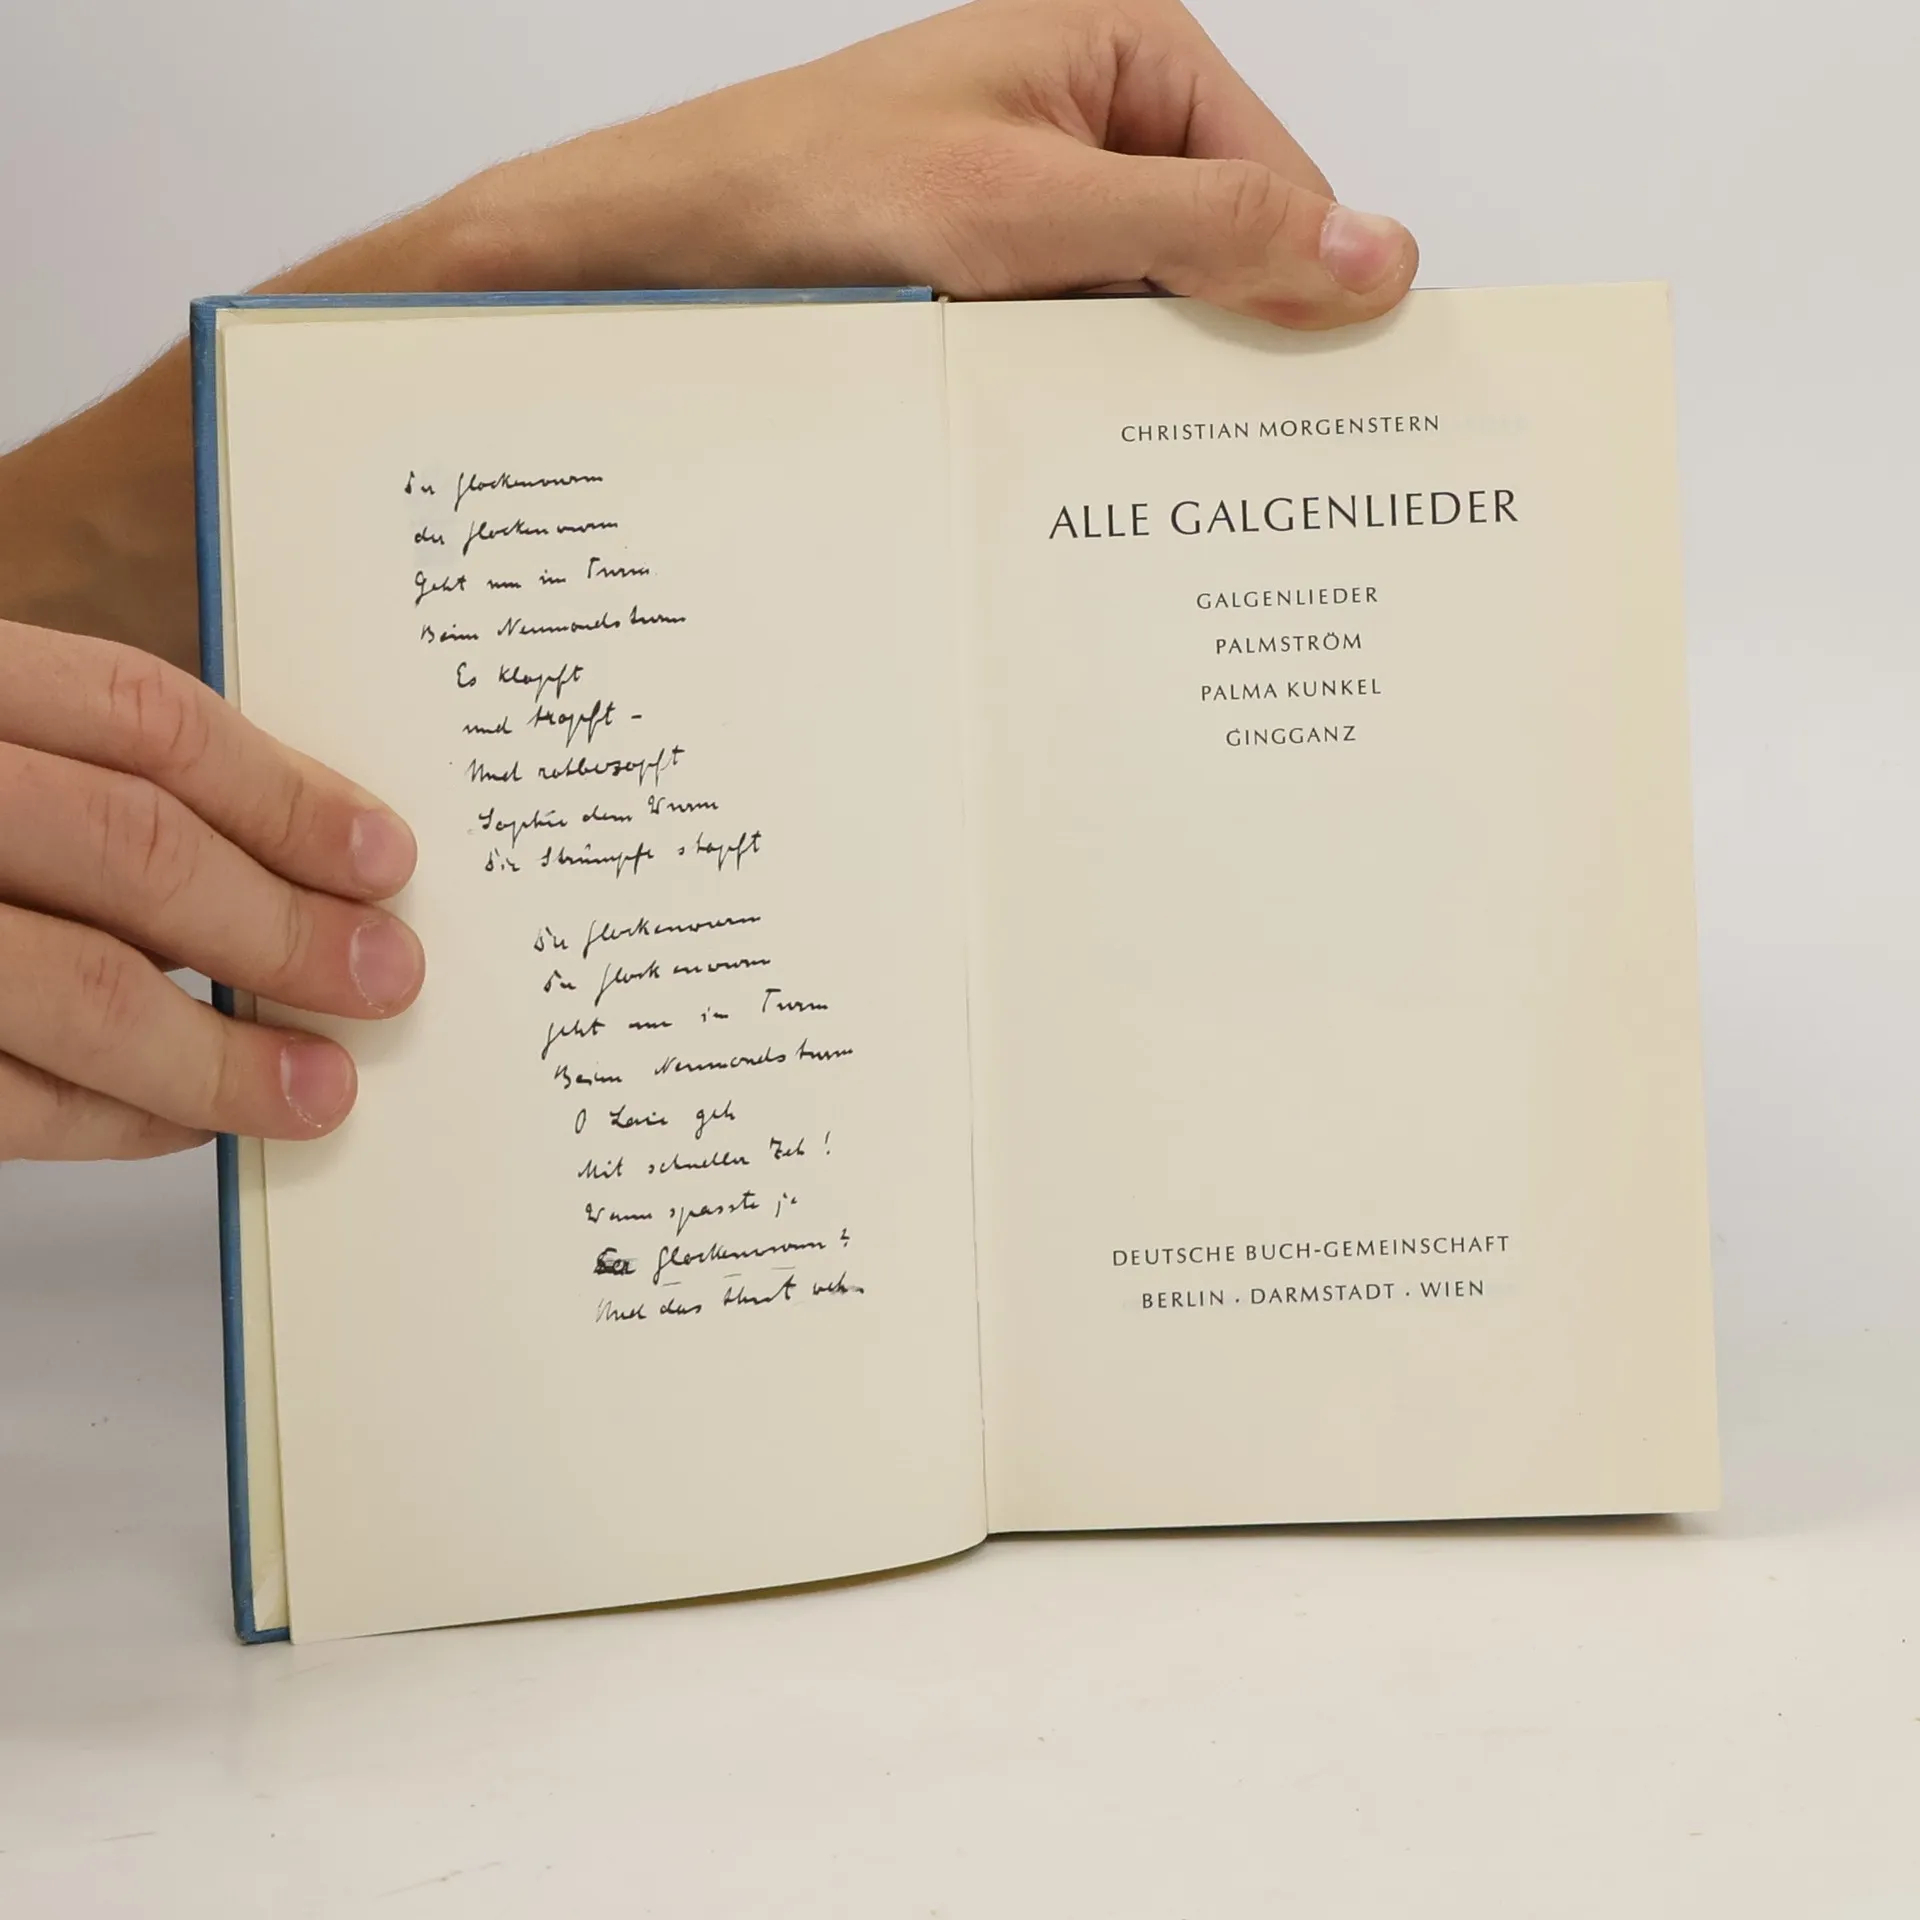 Der Glockenwurm
der Glockenwurm
Geht um im Turm.
Beim Neumondsturm
Es klopft
und tropft –
Und rotbezopft
Sophie dem Wurm
Die Strümpfe stopft
Der Glockenwurm
Der Glockenwurm
geht um im Turm
Beim Neumondsturm
O Laie geh
Mit schneller Zeh!
Wann spasste je
Der Glockenwurm?
Und das thut weh.
CHRISTIAN MORGENSTERN
ALLE GALGENLIEDER
GALGENLIEDER
PALMSTRÖM
PALMA KUNKEL
GINGGANZ
DEUTSCHE BUCH-GEMEINSCHAFT
BERLIN · DARMSTADT · WIEN